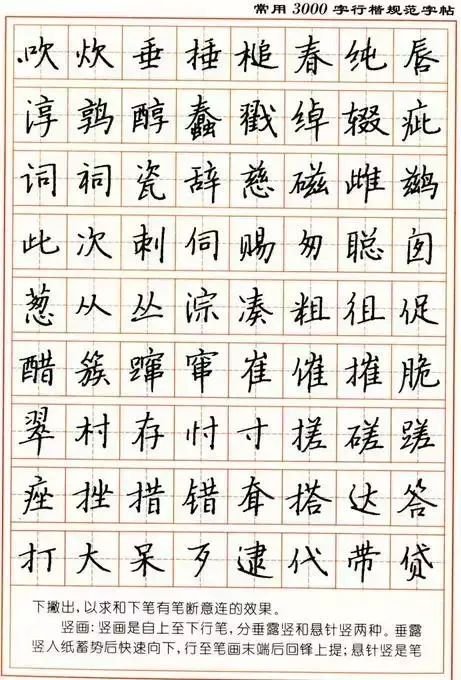 常用3000字行楷规范字帖
吹炊垂捶槌春纯唇
淳鹑醇蠢戳绰辍疵
词祠瓷辞慈磁雌鹚
此次刺伺赐匆聪囱
葱从丛淙凑粗徂促
醋簇蹿窜崔催摧脆
翠村存忖寸搓磋蹉
痤挫措错耷搭达答
打大呆歹逮代带贷
下撇出，以求和下笔有笔断意连的效果。
竖画：竖画是自上至下行笔，分垂露竖和悬针竖两种。垂露
竖入纸蓄势后快速向下，行至笔画末端后回锋上提；悬针竖是笔